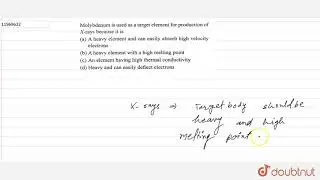 11969632
Molybdenum is used as a target element for production of
X-rays because it is
(a) A heavy element and can easily absorb high velocity
electrons
(b) A heavy element with a high melting point
(c) An element having high thermal conductivity
(d) Heavy and can easily deflect electrons
X-rays ⇒ Target body should be
heavy and high
melting point.
doubtnut